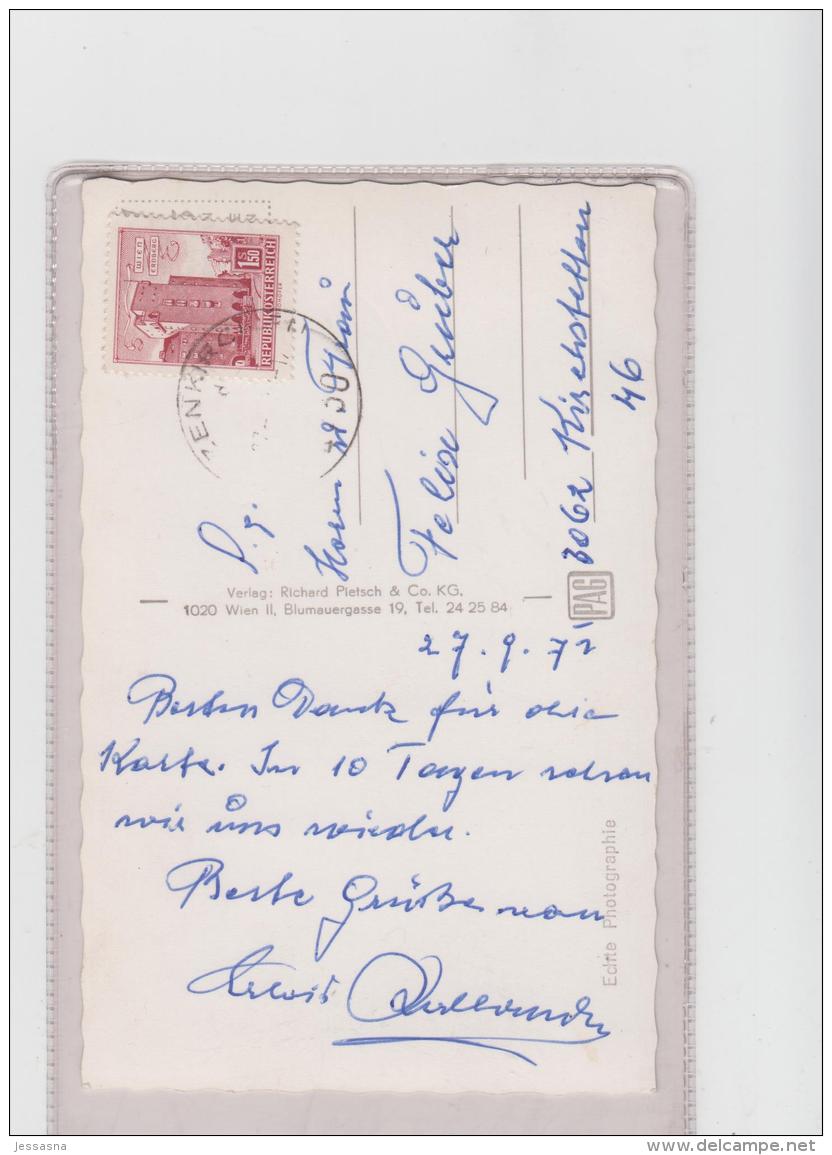 WIEN
ERDBERG
1S50
REPUBLIK ÖSTERREICH
P.g.
Herrn u Frau
Felix Grüber
3062 Kirchstetten
46
Verlag: Richard Pietsch & Co. KG,
1020 Wien II, Blumauergasse 19, Tel. 24 25 84
PAG
27.9.72
Besten Dank für die
Karte. In 10 Tagen sehen
wir uns wieder.
Beste Grüße von
Alois
Echte Photographie
jessasna
www.delcampe.net